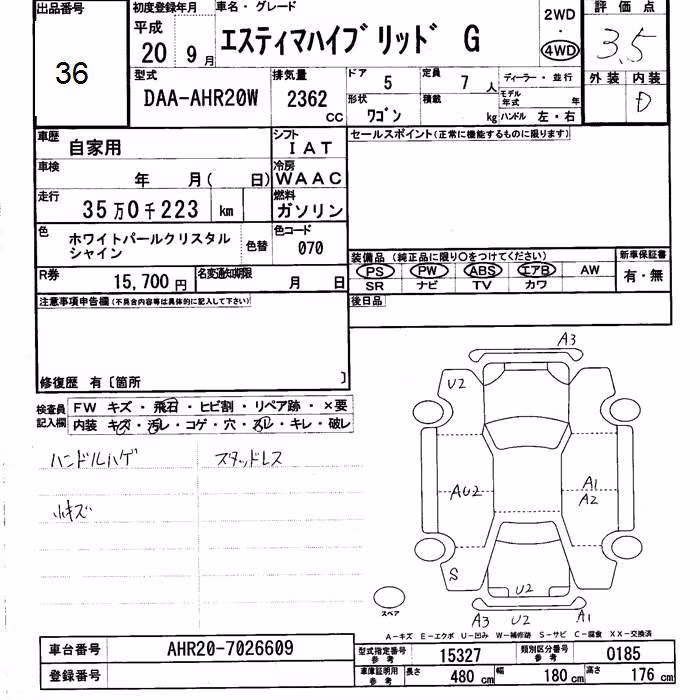 出品番号 初度登録年月 車名・グレード 評価点
36
平成 20 9月 エスティマハイブリッド G 2WD ・ 4WD 3.5
型式 排気量 ドア 5 定員 7 人 ディーラー・並行 外装 内装
DAA-AHR20W 2362 CC 形状 ワゴン 積載 kg モデル年式 年 ハンドル 左・右 D
車歴 自家用 シフト IAT セールスポイント(正常に機能するものに限ります)
車検 年 月( 日) 冷房 WAAC
走行 35万0千223 km 燃料 ガソリン
色 ホワイトパールクリスタルシャイン 色替 色コード 070
装備品 (純正品に限り〇をつけてください) 新車保証書
PS PW ABS エアB AW 有・無
SR ナビ TV カワ
R券 15,700円 名変通知期限 月 日
後日品
注意事項申告欄(不具合内容等は具体的に記入して下さい)
修復歴 有〔箇所 〕
検査員記入欄 FW キズ・飛石・ヒビ割・リペア跡・×要
内装 キズ・汚レ・コゲ・穴・スレ・キレ・破レ
ハンドルハゲ スタッドレス
小キズ
A3
U2
AU2 A1
A2
S U2
A3 U2 A1
スペア
A-キズ E-エクボ U-凹み W-補修跡 S-サビ C-腐食 XX-交換済
車台番号 AHR20-7026609 型式指定番号 参考 15327 類別区分番号 参考 0185
登録番号 車庫証明用 参考 長さ 480 cm 幅 180 cm 高さ 176 cm